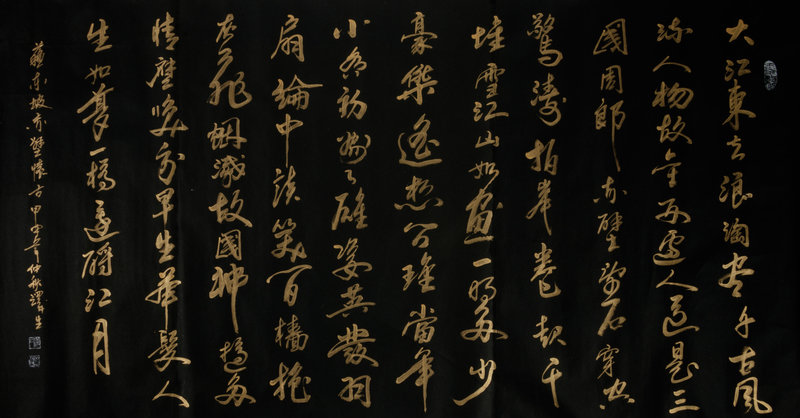 大江東去浪淘盡千古風
流人物故壘西邊人道是三
國周郎赤壁亂石穿空
驚濤拍岸卷起千
堆雪江山如畫一時多少
豪傑遙想公瑾當年
小喬初嫁了雄姿英發羽
扇綸巾談笑間檣櫓
灰飛烟滅故國神遊多
情應笑我早生華髮人
生如夢一樽還酹江月
蘇東坡赤壁懷古甲申年仲秋